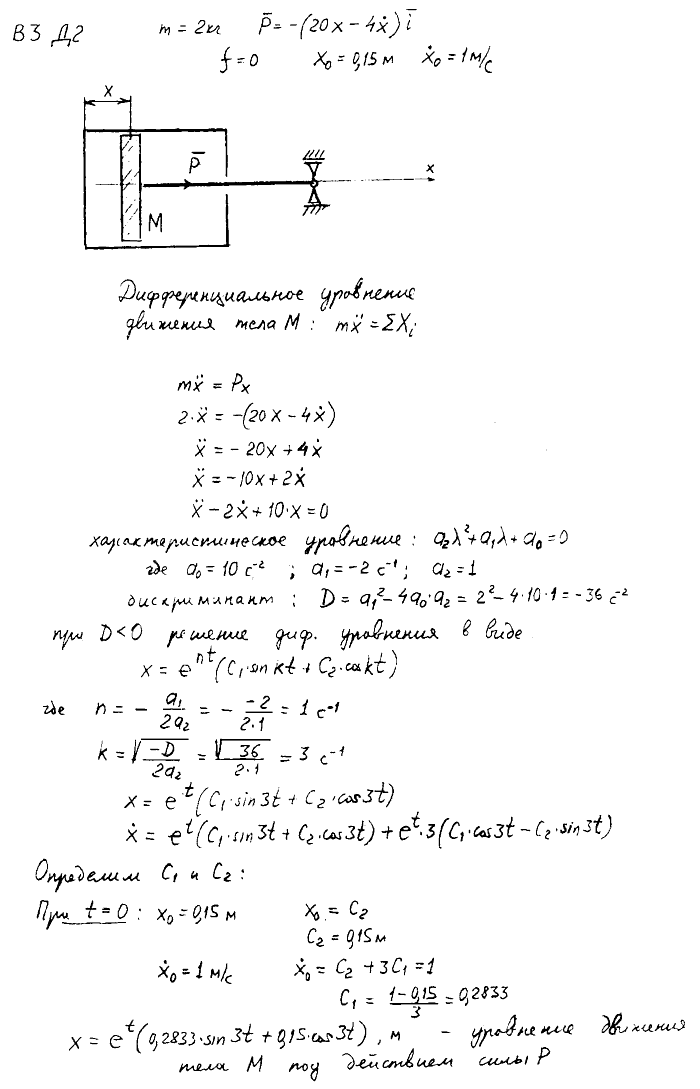 В3 Д2 m = 2кг P̄ = -(20x - 4ẋ) ī
f = 0 x₀ = 0,15 м ẋ₀ = 1 м/с
x
P̄
x
M
Дифференциальное уровнение
движения тела М : mẍ = ΣXᵢ
mẍ = Pₓ
2·ẍ = -(20x - 4ẋ)
ẍ = - 20x + 4ẋ
ẍ = -10x + 2ẋ
ẍ - 2ẋ + 10·x = 0
характеристическое уровнение : a₂λ² + a₁λ + a₀ = 0
где a₀ = 10 с⁻² ; a₁ = -2 с⁻¹ ; a₂ = 1
дискриминант : D = a₁² - 4a₀·a₂ = 2² - 4·10·1 = -36 с⁻²
при D<0 решение диф. уровнения в виде
x = e^{nt}(C₁·sin kt + C₂·cos kt)
где n = - a₁/2a₂ = - -2/2·1 = 1 с⁻¹
k = √-D/2a₂ = √36/2·1 = 3 с⁻¹
x = e^t (C₁·sin3t + C₂·cos3t)
ẋ = e^t(C₁·sin3t + C₂·cos3t) + e^t·3(C₁·cos3t - C₂·sin3t)
Определим C₁ и C₂ :
При t=0 : x₀ = 0,15 м x₀ = C₂
C₂ = 0,15м
ẋ₀ = 1 м/с ẋ₀ = C₂ + 3C₁ = 1
C₁ = 1-0,15/3 = 0,2833
x = e^t(0,2833·sin3t + 0,15·cos3t) , м - уровнение движения
тела М под действием силы P